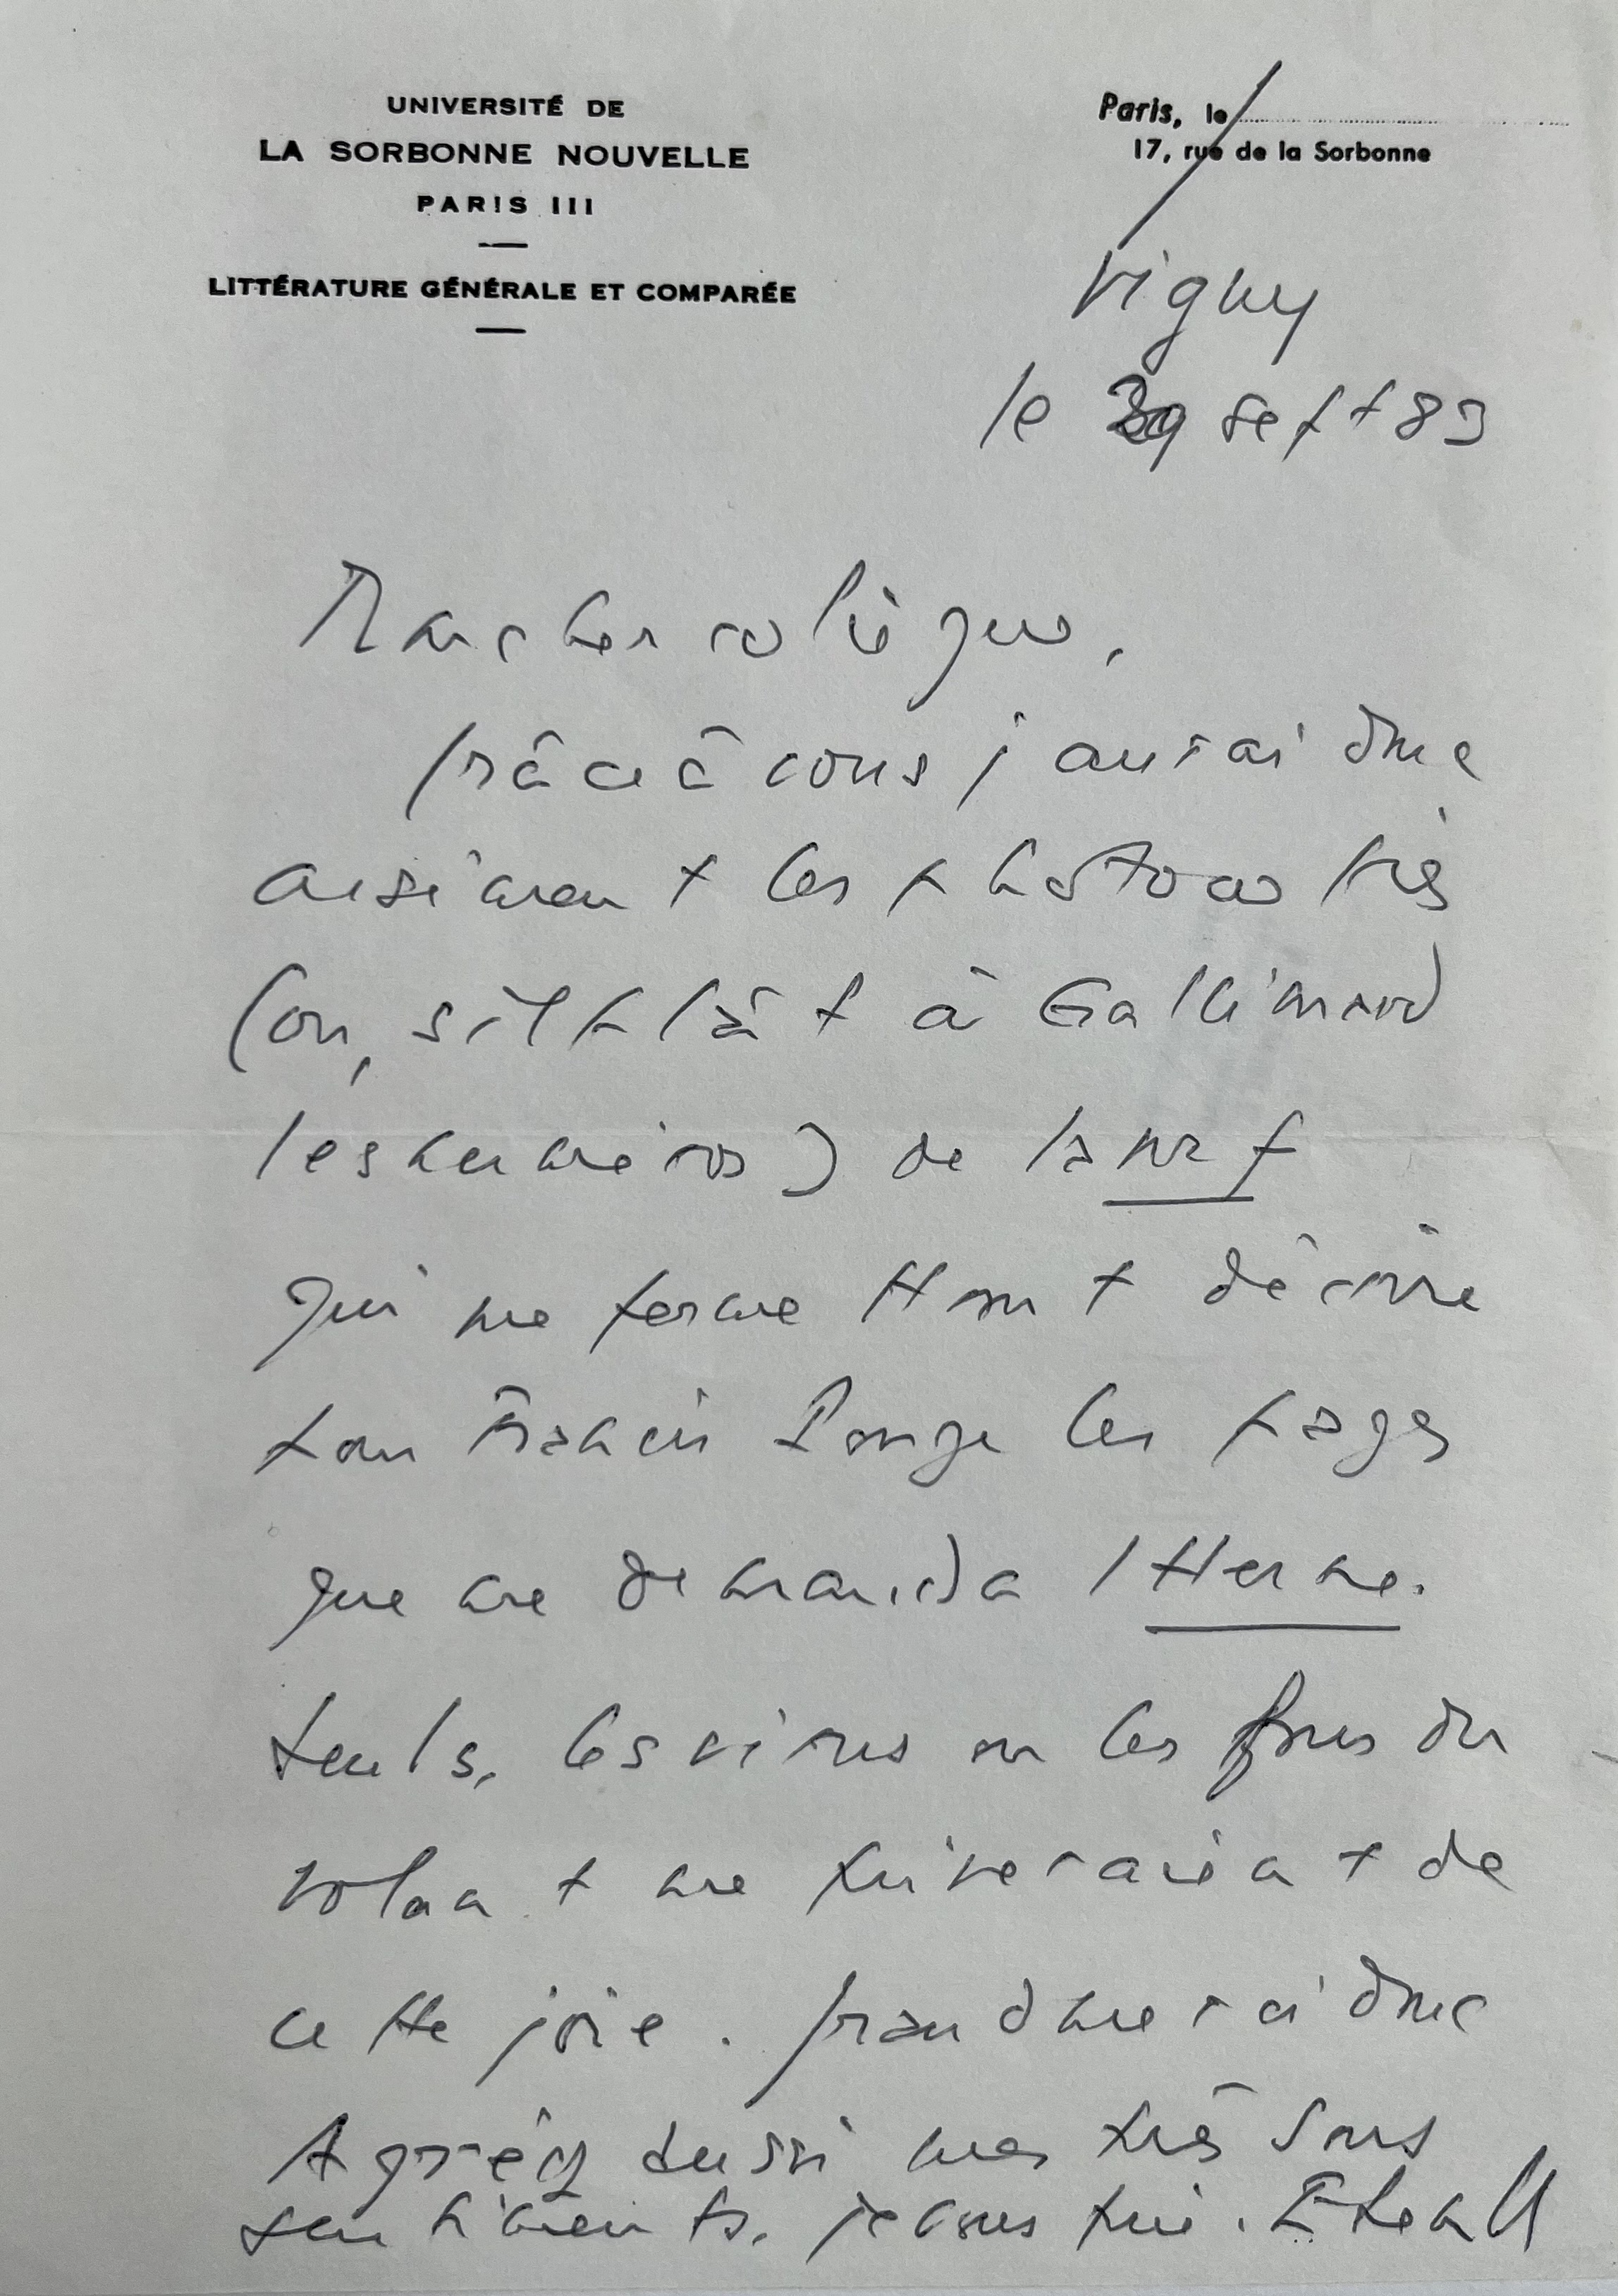 UNIVERSITÉ DE
LA SORBONNE NOUVELLE
PARIS III
LITTÉRATURE GÉNÉRALE ET COMPARÉE
Paris, le
17, rue de la Sorbonne
Vigny
le 29 sept 83
Mon cher collègue,
grâce à vous j'aurai donc
aisément les photocopies
(ou, s'il plaît à Gallimard
les numéros) de la nrf
qui me permettront d'écrire
pour Francis Ponge les pages
que me demanda l'Herne.
Seuls, les virus ou les fous du
volant me priveraient de
cette joie. Grand merci donc
Agréez aussi mes très bons
sentiments, je vous prie. Etiemble